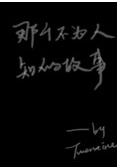 那些不为人
知的故事
——by